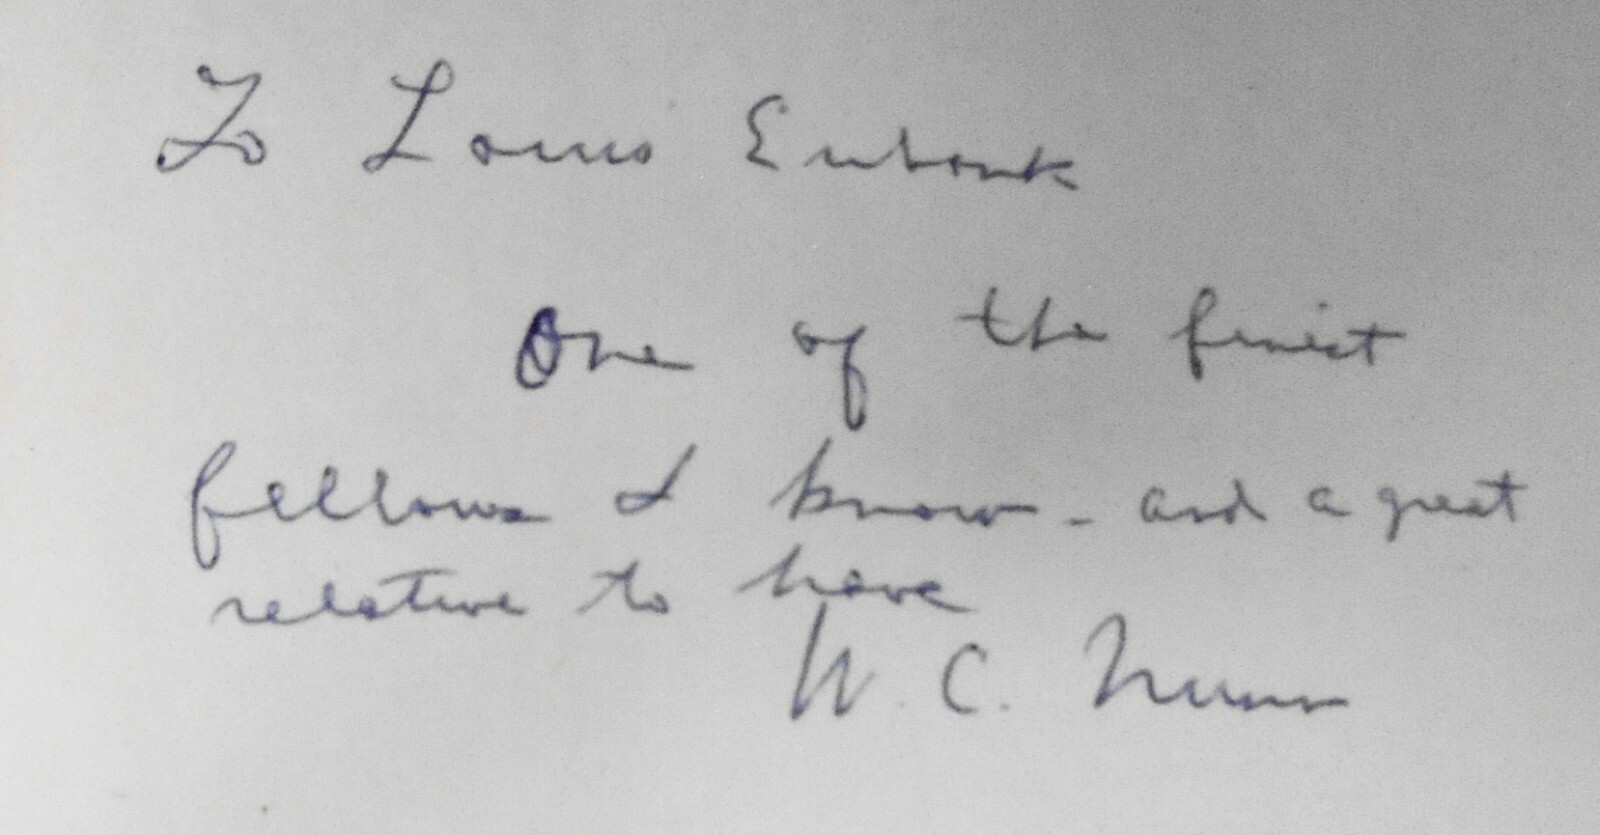 To Louis Eubank
One of the finest
fellows I know - and a great
relative to have
W. C. Nunn